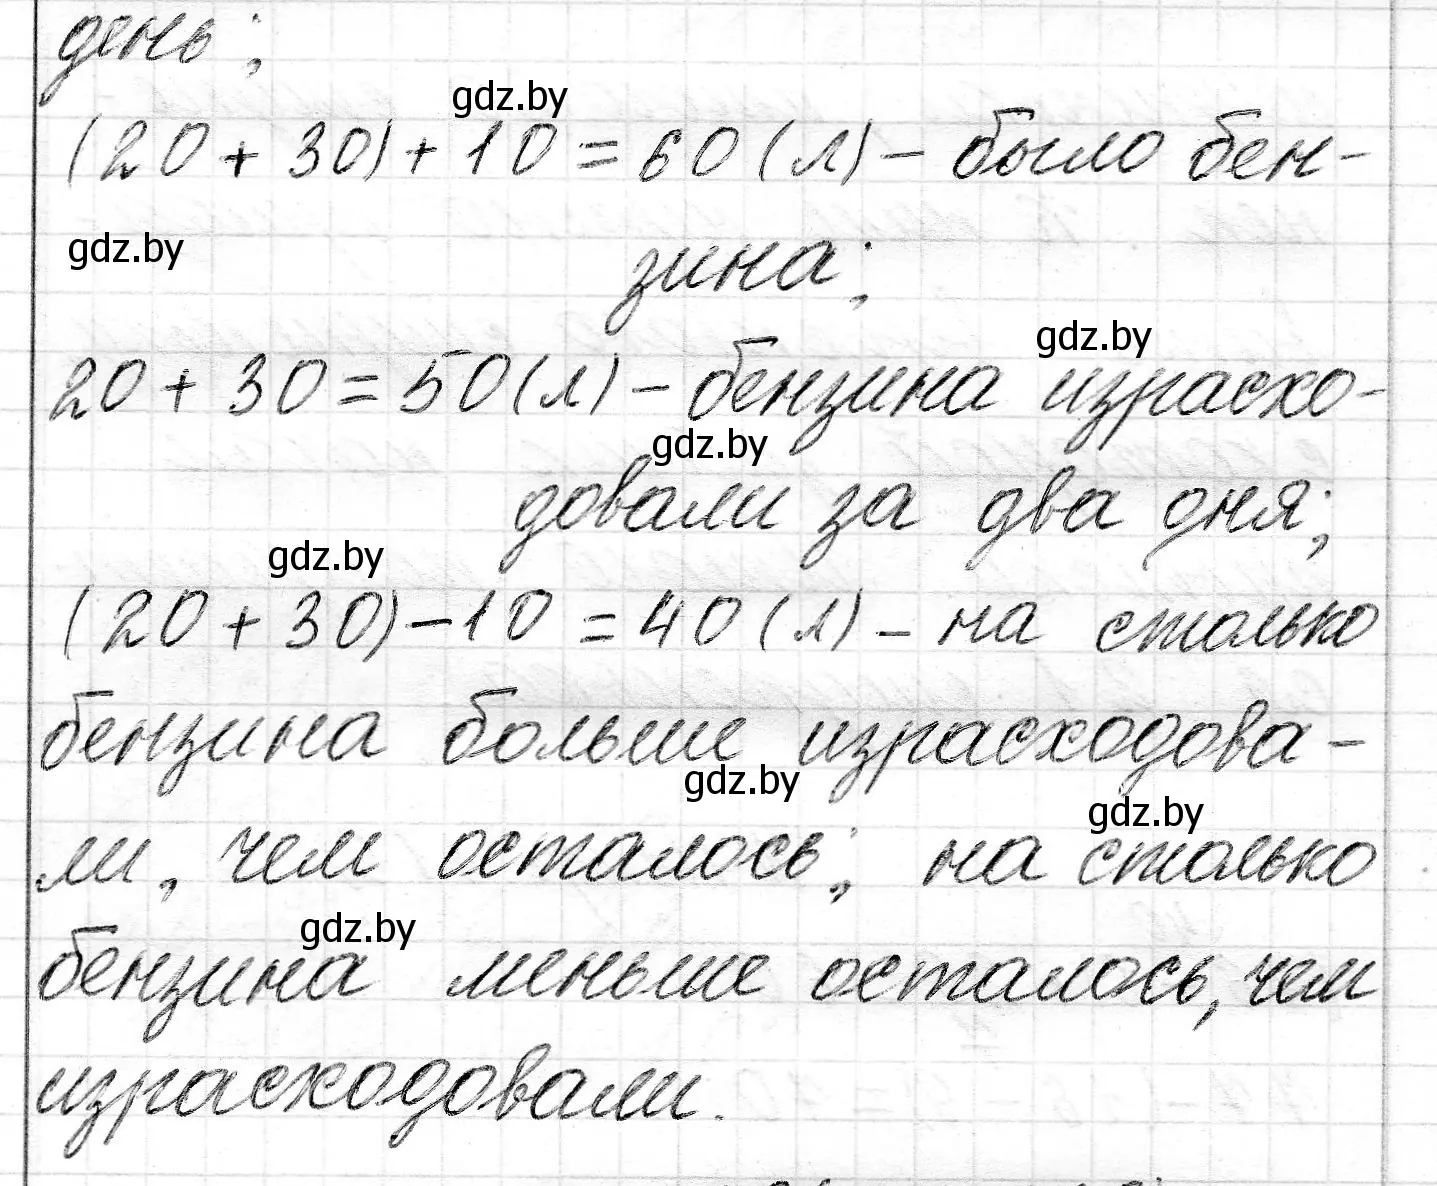 день;
gdz.by
(20 + 30) + 10 = 60 (л) – было бен-
gdz.by
зина;
gdz.by
20 + 30 = 50 (л) – бензина израсхо-
gdz.by
довали за два дня;
gdz.by
(20 + 30) – 10 = 40 (л) – на столько
бензина больше израсходова-
gdz.by
gdz.by
ли, чем осталось; на столько
gdz.by
бензина меньше осталось, чем
израсходовали.